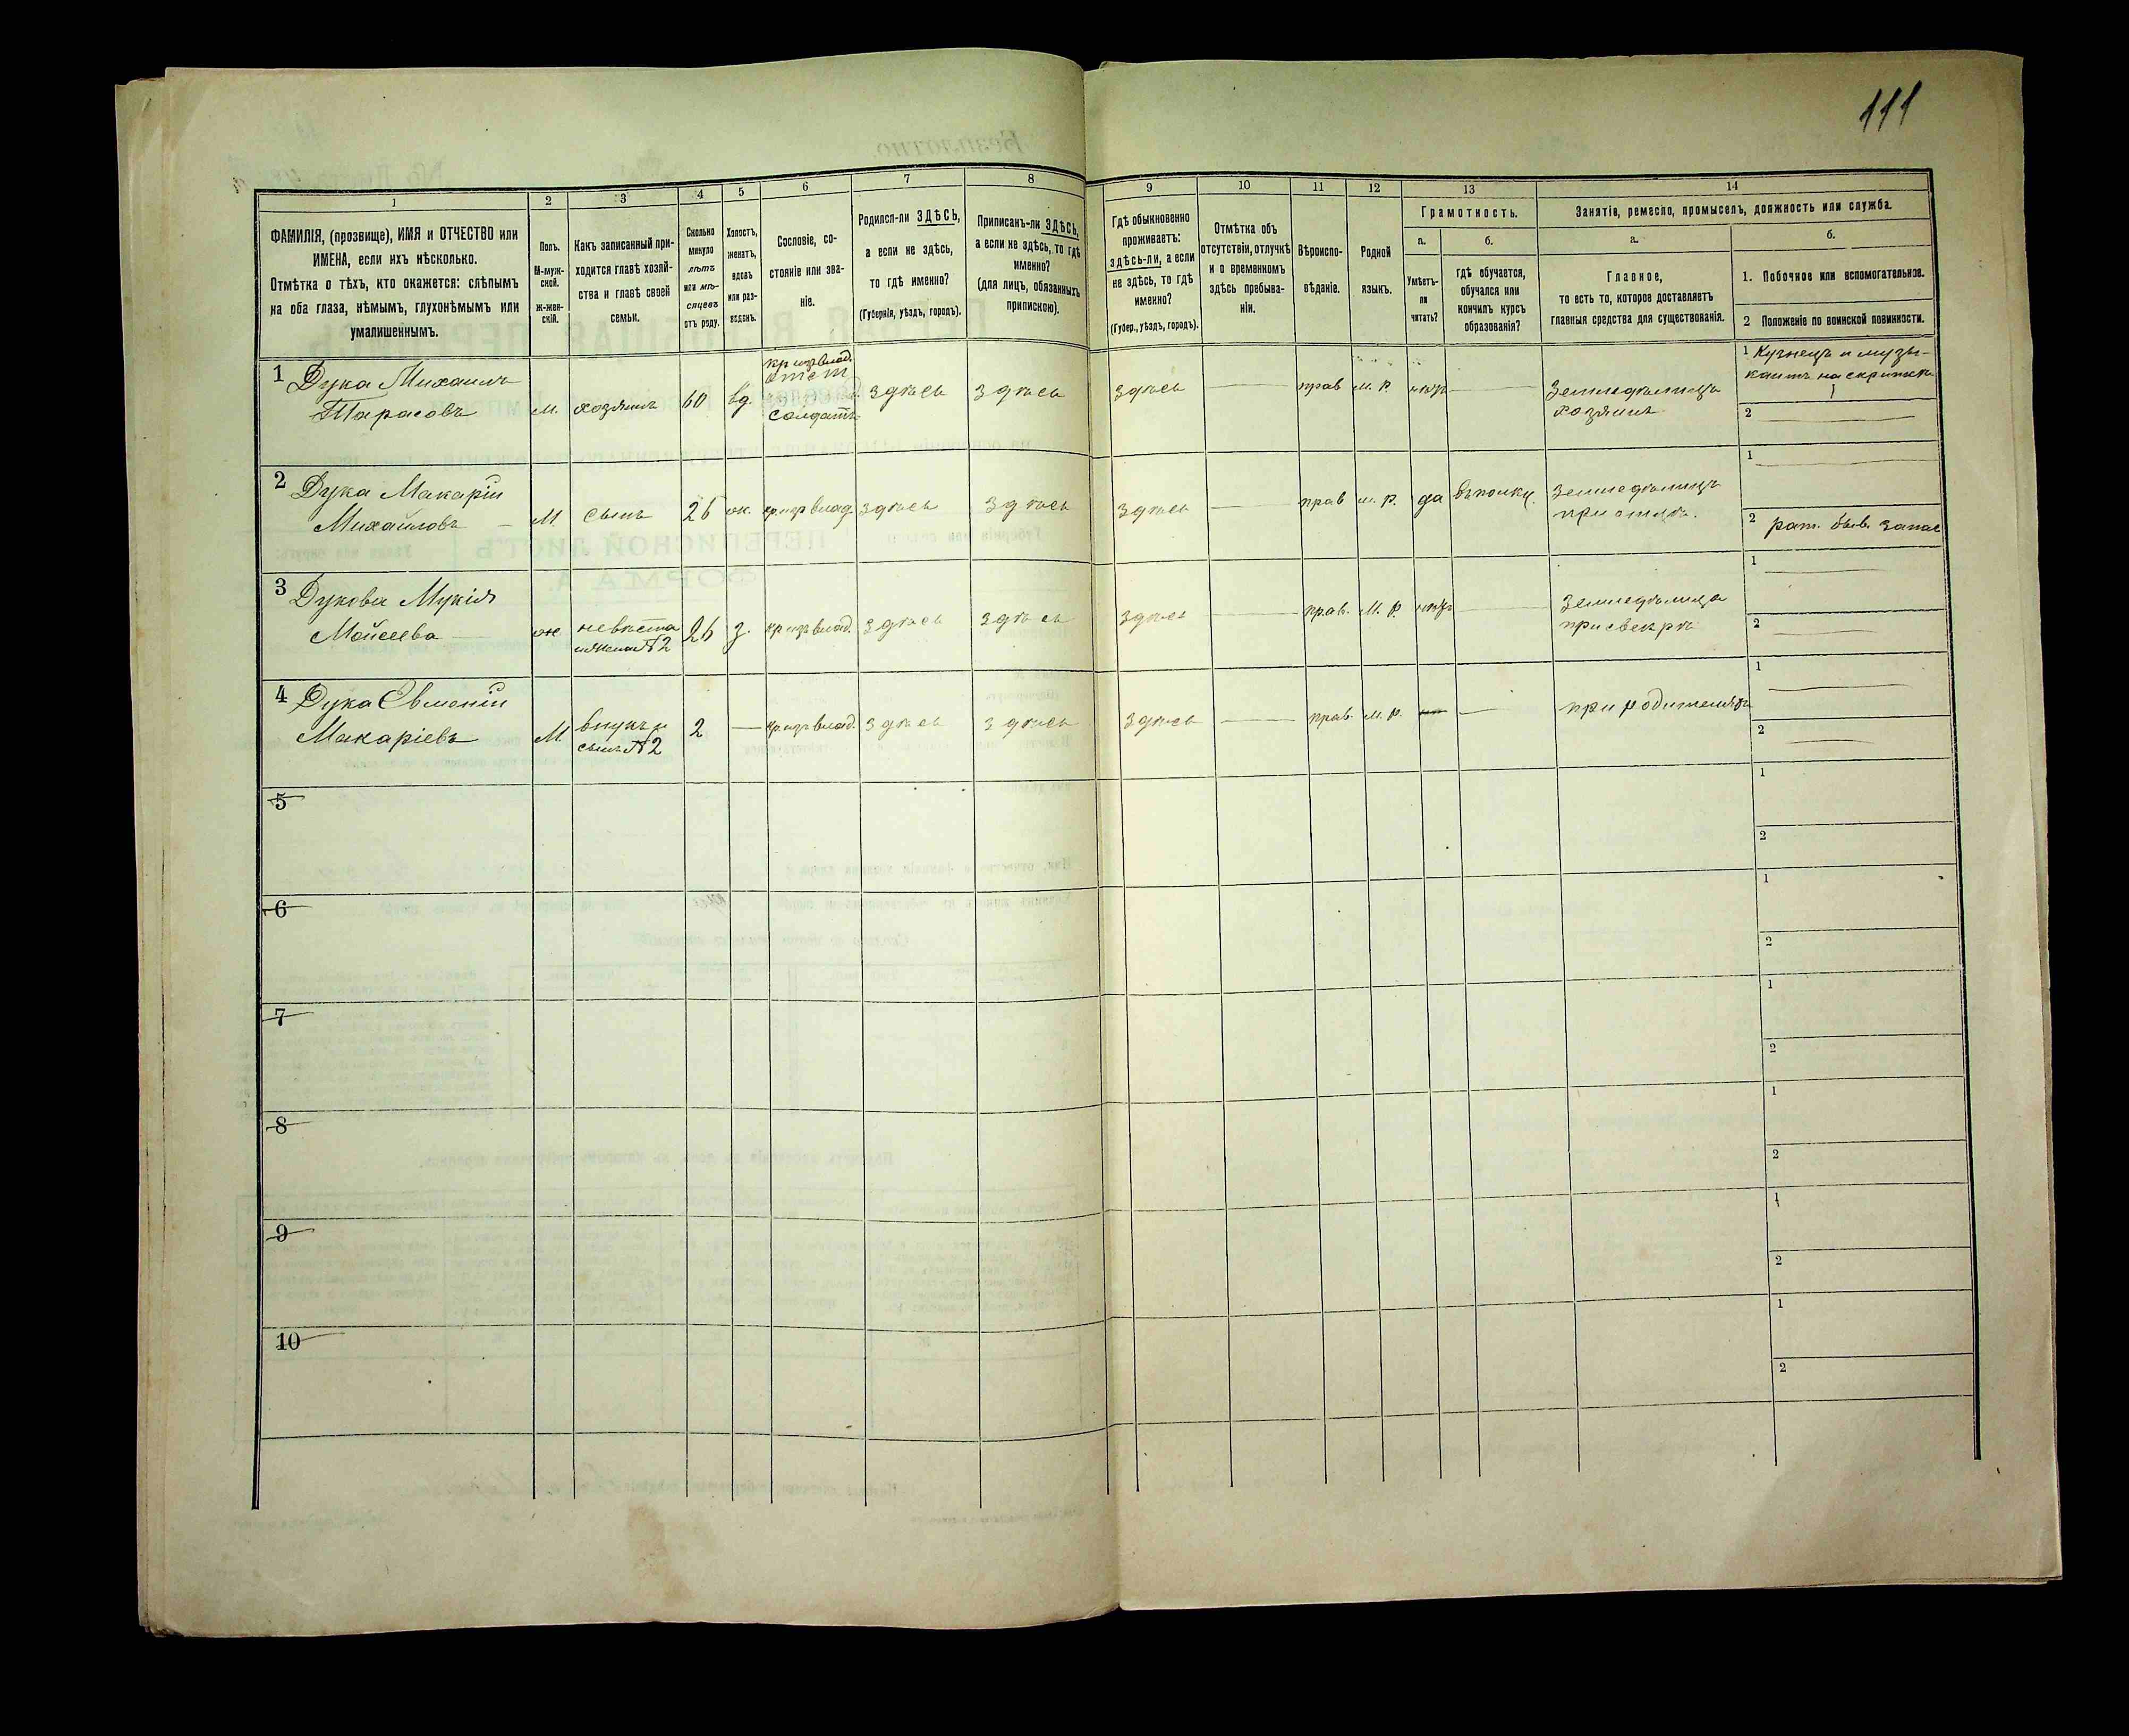 111
1 2 3 4 5 6 7 8 9 10 11 12 13 14
ФАМИЛІЯ, (прозвище), ИМЯ и ОТЧЕСТВО или
ИМЕНА, если ихъ нѣсколько.
Отмѣтка о тѣхъ, кто окажется: слѣпымъ
на оба глаза, нѣмымъ, глухонѣмымъ или
умалишеннымъ.
Полъ.
М-муж-
ской.
ж-жен-
скій.
Какъ записанный при-
ходится главѣ хозяй-
ства и главѣ своей
семьи.
Сколько
минуло
лѣтъ
или мѣ-
сяцевъ
отъ роду.
Холостъ,
женатъ,
вдовъ
или раз-
веденъ.
Сословіе, со-
стояніе или зва-
ніе.
Родился-ли ЗДѢСЬ,
а если не здѣсь,
то гдѣ именно?
(Губернія, уѣздъ, городъ).
Приписанъ-ли ЗДѢСЬ,
а если не здѣсь, то гдѣ
именно?
(для лицъ, обязанныхъ
припискою).
Гдѣ обыкновенно
проживаетъ:
здѣсь-ли, а если
не здѣсь, то гдѣ
именно?
(Губер., уѣздъ, городъ).
Отмѣтка объ
отсутствіи, отлучкѣ
и о временномъ
здѣсь пребыва-
ніи.
Вѣроиспо-
вѣданіе.
Родной
языкъ.
Грамотность.
а.
Умѣетъ-
ли
читать?
б.
гдѣ обучается,
обучался или
кончилъ курсъ
образованія?
Занятіе, ремесло, промыселъ, должность или служба.
а.
Главное,
то есть то, которое доставляетъ
главныя средства для существованія.
б.
1. Побочное или вспомогательное.
2 Положеніе по воинской повинности.
1 Дука Михаилъ
Тарасовъ
м. хозяинъ 60 вд.
кр. изъ влад.
отст.
солдатъ
здѣсь здѣсь здѣсь прав м. р. нѣтъ
Земледѣлецъ
хозяинъ
1 Кузнецъ и музы-
кантъ на скрипкѣ
2
2 Дука Макарій
Михайловъ
М. сынъ 26 ж. кр. изъ влад. здѣсь здѣсь здѣсь прав м. р. да въ полку.
Земледѣлецъ
при отцѣ.
1
2 рат. быв. запас
3 Дукова Мукія
Мойсеева
ж. невѣстка
и жена №2
26 з. кр. изъ влад. здѣсь здѣсь здѣсь прав. м. р. нѣтъ
Земледѣлица
при свекрѣ
1
2
4 Дука Евменій
Макаріевъ
М внукъ и
сынъ №2
2 кр. изъ влад. здѣсь здѣсь здѣсь прав. м. р.
при родителяхъ
1
2
5
1
2
6
1
2
7
1
2
8
1
2
9
1
2
10
1
2